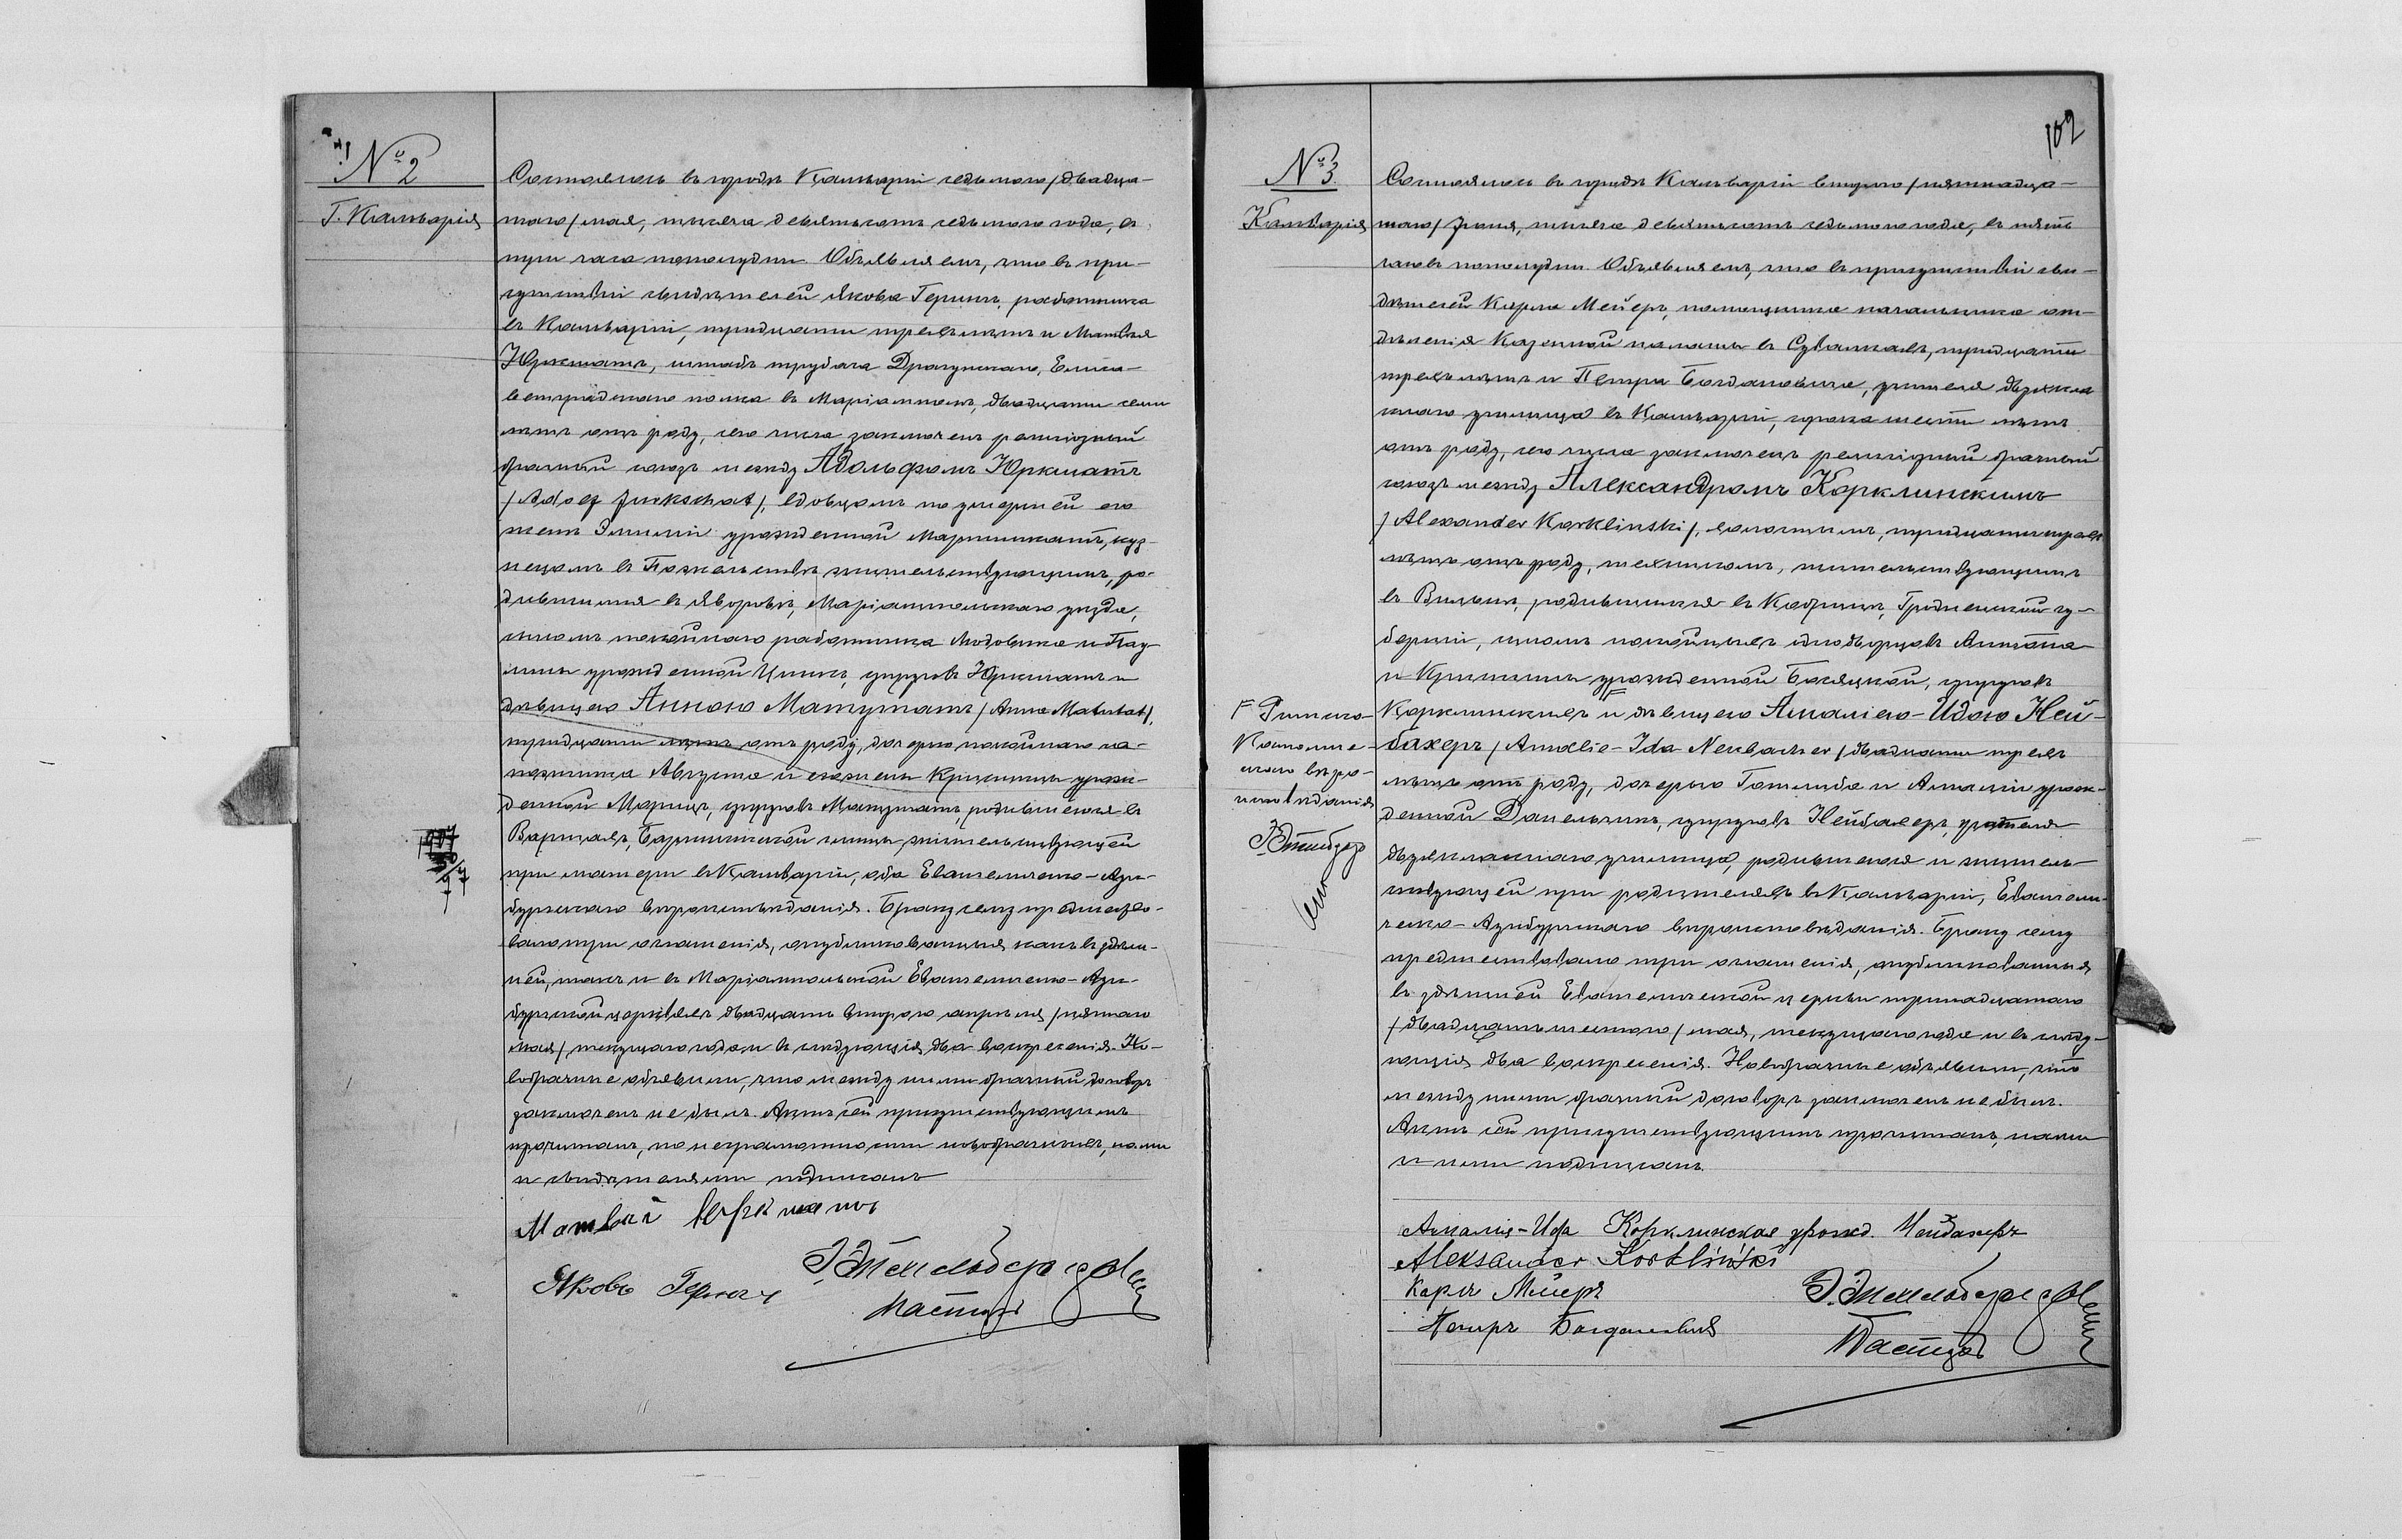 № 2
Г. Кальварія
Состоялось въ городѣ Кальваріи седьмого /двадца-
таго/ мая, тысяча девятьсотъ седьмого года, въ
три часа пополудни. Объявляемъ, что въ при-
сутствіи свидѣтелей Якова Герингъ, работника
въ Кальваріи, тридцати трехъ лѣтъ и Матвѣя
Юркшатъ, штабъ трубача Драгунскаго, Елиса-
ветградскаго полка въ Маріамполѣ, двадцати семи
лѣтъ отъ роду, сего числа заключенъ религіозный
брачный союзъ между Адольфомъ Юркшатъ
/Adolf Jurkschat/, вдовцомъ по умершей его
женѣ Эмиліи урожденной куз-
нецомъ въ жительствующимъ, ро-
дившимся въ Яворовѣ, Маріампольскаго уѣзда,
сыномъ покойнаго работника Людовика и Пау-
лины урожденной супруговъ Юркшатъ и
дѣвицею Анною Матутатъ /Anna Matutat/,
тридцати лѣтъ отъ роду, дочерью покойнаго ка-
Августа и его жены Кристины урож-
денной супруговъ Матутатъ, родившеюся въ
гмины, жительствующей
при матери въ Кальваріи, оба Евангелическо-Аугс-
бургскаго вѣроисповѣданія. Браку сему предшество-
вало три оглашенія, опубликованныя какъ въ здѣш-
ней, такъ и въ Маріампольской Евангелическо-Аугс-
бургской церквахъ двадцать второго апрѣля /пятаго
мая/ текущаго года и въ слѣдующія два воскресенія. Но-
вобрачные объявили, что между ними брачный договоръ
заключенъ не былъ. Актъ сей присутствующимъ
прочитанъ, по неграмотности новобрачныхъ, нами
и свидѣтелями подписанъ
Матвѣй Юркшатъ
Яковъ Герингъ
Пастор
1907
102
№ 3.
Кальварія
Состоялось въ городѣ Кальваріи второго /пятнадца-
таго/ Іюня, тысяча девятьсотъ седьмого года, въ пять
часовъ пополудни. Объявляемъ, что въ присутствіи сви-
дѣтелей Карла Мейеръ, помощника начальника от-
дѣленія Казенной палаты въ Сувалкахъ, тридцати
трехъ лѣтъ и Петра Богдановича, учителя двухклас-
снаго училища въ Кальваріи, сорока шести лѣтъ
отъ роду, сего числа заключенъ религіозный брачный
союзъ между Александромъ Корклинскимъ
/Alexander Korklinski/, холостымъ, тридцати трехъ
лѣтъ отъ роду, техникомъ, жительствующимъ
въ Вильнѣ, родившимся въ Кобринѣ, Гродненской гу-
берніи, сыномъ покойныхъ однодворцовъ Антона
и Кристины урожденной супруговъ
Корклинскихъ и дѣвицею Амаліею-Идою Ней-
бахеръ /Amalie-Ida Neubacher/ двадцати трехъ
лѣтъ отъ роду, дочерью Готлиба и Амаліи урож-
денной супруговъ Нейбахеръ, учителя
двухкласснаго училища, родившеюся и житель-
ствующей при родителяхъ въ Кальваріи, Евангели-
ческо-Аугсбургскаго вѣроисповѣданія. Браку сему
предшествовало три оглашенія, опубликованныя
въ здѣшней Евангелической церкви тринадцатаго
/двадцать шестого/ мая, текущаго года и въ слѣду-
ющія два воскресенія. Новобрачные объявили, что
между ними брачный договоръ заключенъ не былъ.
Актъ сей присутствующимъ прочитанъ, нами
и ими подписанъ.
F Римско-
Католиче-
скаго вѣро-
исповѣданія
Амалія-Ида Корклинская урожд. Нейбахеръ
Aleksander Korkliński
Карлъ Мейеръ
Петръ Богдановичъ
Пасторъ